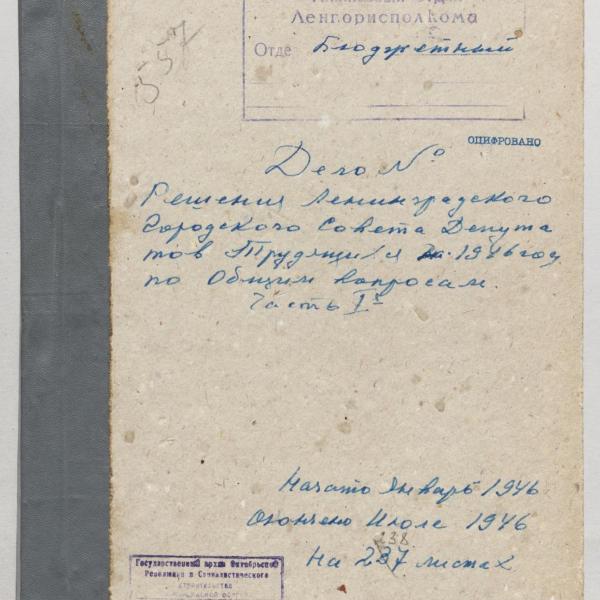 Ленгорисполкома
Отде Бюджетный
557
ОЦИФРОВАНО
Дело №
Решения Ленинградского
Городского Совета Депута
тов Трудящихся за 1946 год
по Общим вопросам.
Часть Iя
Начато Январь 1946
Окончено Июль 1946
238
На 237 листах
Государственный архив Октябрьской
Революции и Социалистического
строительства